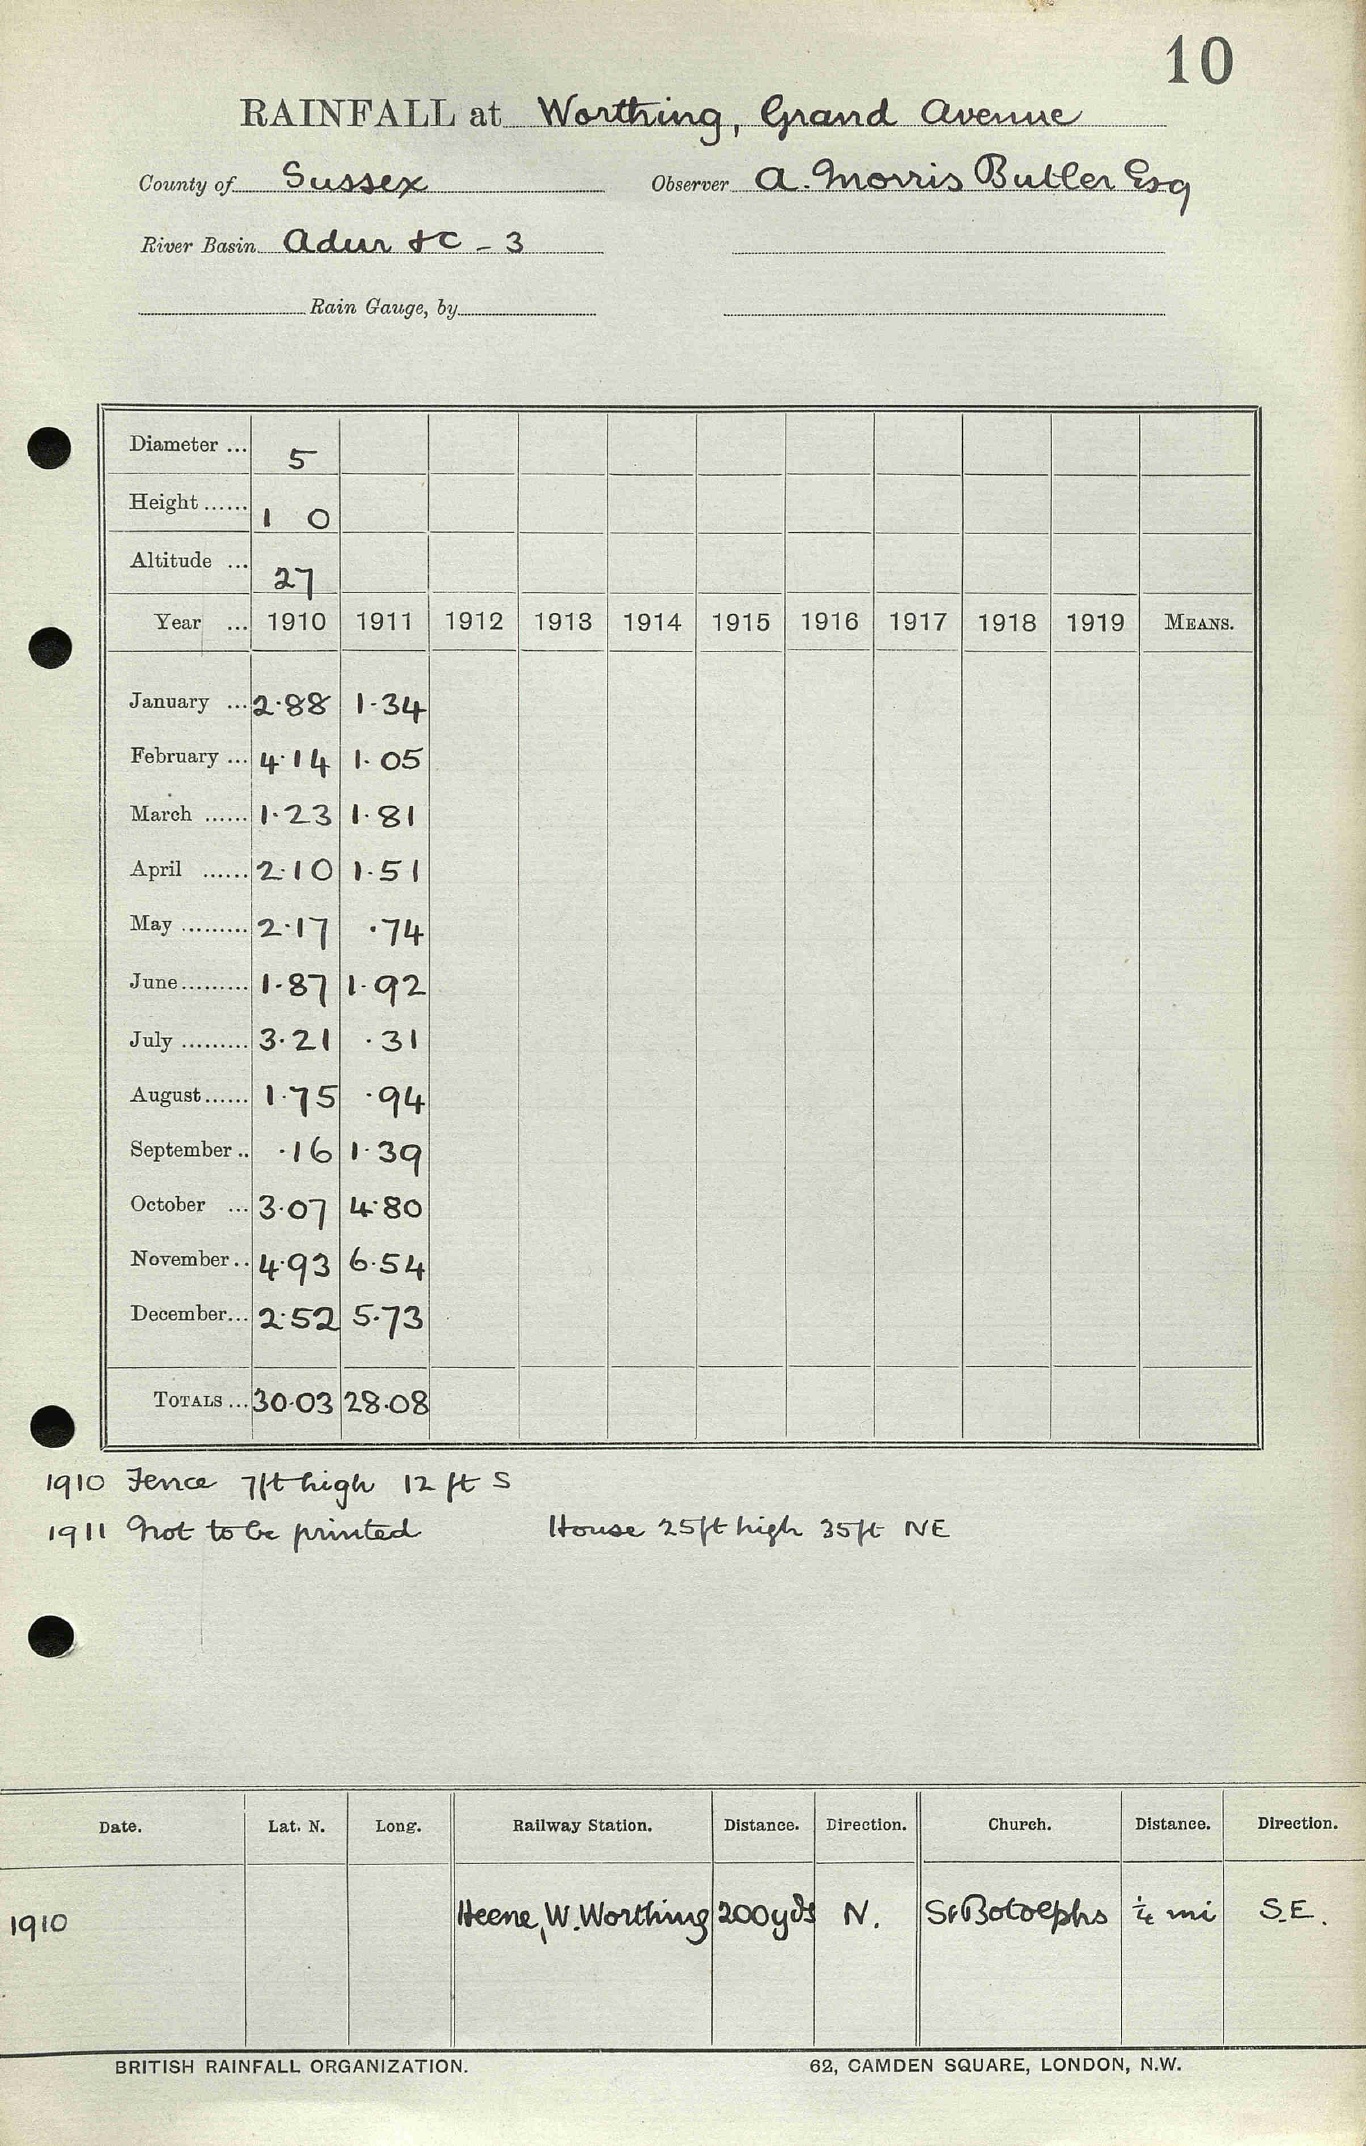 10
RAINFALL at Worthing, Grand Avenue
County of Sussex Observer A. Morris Butler Esq
River Basin Adur &c - 3
Rain Gauge, by
Diameter ... 5
Height ...... 1 0
Altitude ... 27
Year ... 1910 1911 1912 1913 1914 1915 1916 1917 1918 1919 MEANS.
January ... 2.88 1.34
February ... 4.14 1.05
March ...... 1.23 1.81
April ...... 2.10 1.51
May ......... 2.17 .74
June ......... 1.87 1.92
July ......... 3.21 .31
August ...... 1.75 .94
September .. .16 1.39
October ... 3.07 4.80
November .. 4.93 6.54
December ... 2.52 5.73
TOTALS ... 30.03 28.08
1910 Fence 7ft high 12 ft S
1911 Not to be printed House 25ft high 35ft NE
Date. Lat. N. Long. Railway Station. Distance. Direction. Church. Distance. Direction.
1910 Heene, W. Worthing 200yds N. St Botolphs ¼ mi S.E.
BRITISH RAINFALL ORGANIZATION. 62, CAMDEN SQUARE, LONDON, N.W.